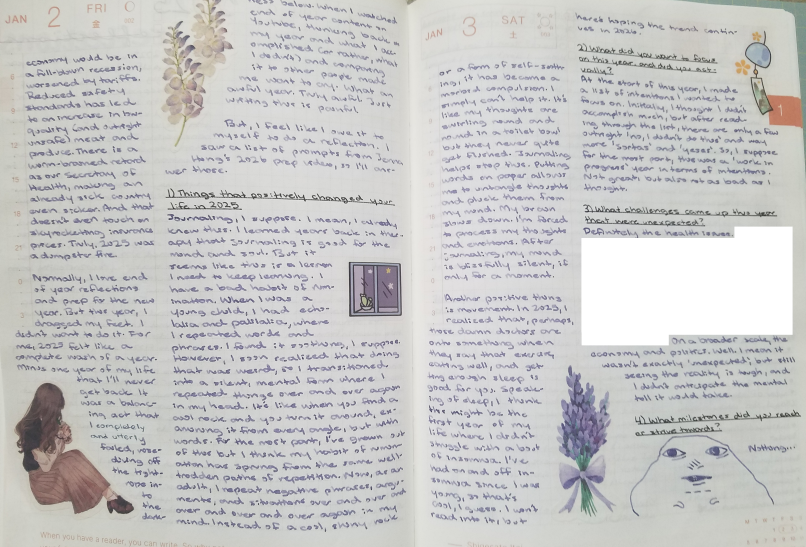 JAN 2 FRI
economy would be in
a full-down recession,
worsened by tariffs.
Reduced safety
standards has led
to an increase in low-
quality (and outright
unsafe) meat and
produce. There is a
worm-brained retard
as our Secretary of
Health, making an
already sick country
even sicker. And that
doesn't even touch on
skyrocketing insurance
prices. Truly, 2025 was
a dumpster fire.
Normally, I love end
of year reflections
and prep for the new
year. But this year, I
dragged my feet. I
didn't want to do it. For
me, 2025 felt like a
complete wash of a year.
Minus one year of my life
that I'll never
get back. It
was a balanc-
ing act that
I completely
and utterly
failed, nose-
diving off
the tight-
rope in-
to
the
dark-
ness below. When I watched
end of year content on
Youtube, thinking back on
my year and what I acc-
omplished (or rather, what
I didn't) and comparing
it to other people made
me want to cry. What an
awful year. Truly awful. Just
writing this is painful.
But, I feel like I owe it to
myself to do a reflection. I
saw a list of prompts from
2026 prep video, so I'll ans-
wer those.
1) Things that positively changed your
life in 2025
Journaling, I suppose. I mean, I already
knew this. I learned years back in ther-
apy that journaling is good for the
mind and soul. But it
seems like this is a lesson
I need to keep learning. I
have a bad habit of rum-
ination. When I was a
young child, I had echo-
lalia and palilalia, where
I repeated words and
phrases. I found it soothing, I suppose.
However, I soon realized that doing
that was weird, so I transitioned
into a silent, mental form where I
repeated things over and over again
in my head. It's like when you find a
cool rock and you turn it around, ex-
amining it from every angle, but with
words. For the most part, I've grown out
of this but I think my habit of rumin-
ation has sprung from the same well-
trodden paths of repetition. Now, as an
adult, I repeat negative phrases, argu-
ments, and situations over and over and
over and over and over again in my
mind. Instead of a cool, shiny rock
When you have a reader, you can write.
JAN 3 SAT
or a form of self-sooth-
ing, it has become a
morbid compulsion. I
simply can't help it. It's
like my thoughts are
swirling round and
round in a toilet bowl
but they never quite
get flushed. Journaling
helps stop this. Putting
words on paper allows
me to untangle thoughts
and pluck them from
my mind. My brain
slows down. I'm forced
to process my thoughts
and emotions. After
journaling, my mind
is blissfully silent, if
only for a moment.
Another positive thing
is movement. In 2025, I
realized that, perhaps,
those damn doctors are
onto something when
they say that exercise,
eating well, and get-
ting enough sleep is
good for you. Speak-
ing of sleep, I think
this might be the
first year of my
life where I didn't
struggle with a bout
of insomnia. I've
had on and off in-
somnia since I was
young, so that's
cool, I guess. I won't
read into it, but
here's hoping the trend contin-
ues in 2026.
2) What did you want to focus
on this year and did you act-
ually?
At the start of this year, I made
a list of intentions I wanted to
focus on. Initially, I thought I didn't
accomplish much, but after read-
ing through the list, there are only a few
outright 'no, I didn't do this' and way
more 'sortas' and 'yeses'. So, I suppose
for the most part, this was a 'work in
progress' year in terms of intentions.
Not great, but also not as bad as I
thought.
1
3) What challenges came up this year
that were unexpected?
Definitely the health issues.
On a broader scale, the
economy and politics. Well, I mean it
wasn't exactly 'unexpected', but still
seeing the reality is tough, and
I didn't anticipate the mental
toll it would take.
4) What milestones did you reach
or strive towards?
Nothing...